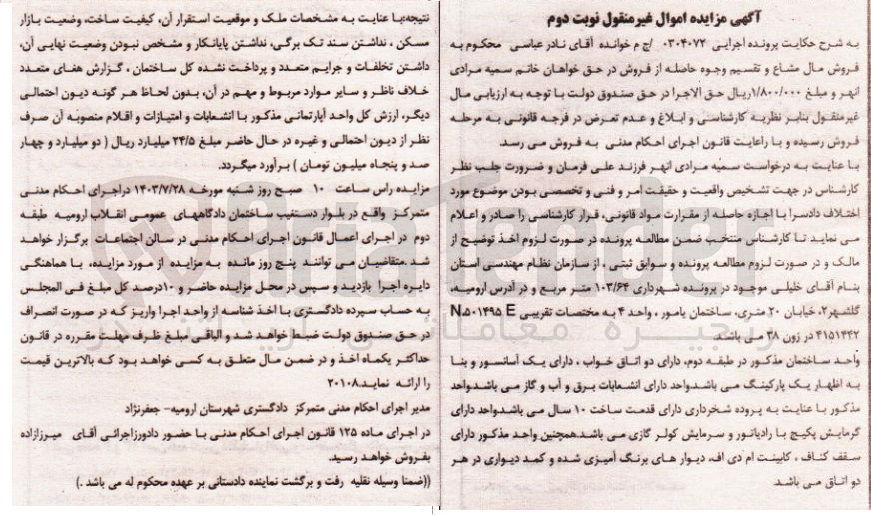 آگهی مزایده اموال غیرمنقول نوبت دوم
به شرح حکایت پرونده اجرایی ۰۳۰۴۰۷۲ /ج م خوانده آقای نادر عباسی محکوم به
فروش مال مشاع و تقسیم وجوه حاصله از فروش در حق خواهان خانم سمیه مرادی
انهر و مبلغ ۱/۸۰۰/۰۰۰ریال حق الاجرا در حق صندوق دولت با توجه به ارزیابی مال
غیرمنقول بنابر نظریه کارشناسی و ابلاغ و عدم تعرض در فرجه قانونی به مرحله
فروش رسیده و با راعایت قانون اجرای احکام مدنی به فروش می رسد.
با عنایت به درخواست سمیه مرادی انهر فرزند علی فرمان و ضرورت جلب نظر
کارشناس در جهت تشخیص واقعیت و حقیقت امر و فنی و تخصصی بودن موضوع مورد
اختلاف دادسرا با اجازه حاصله از مقرارت مواد قانونی، قرار کارشناسی را صادر و اعلام
می نماید تا کارشناس منتخب ضمن مطالعه پرونده در صورت لزوم اخذ توضیح از
مالک و در صورت لزوم مطالعه پرونده و سوابق ثبتی ، از سازمان نظام مهندسی استان
بنام آقای خلیلی موجود در پرونده شهرداری ۱۰۳/۶۴ متر مربع و در آدرس ارومیه،
گلشهر۲، خیابان ۲۰ متری، ساختمان یامور ، واحد ۴ به مختصات تقریبی N،۵۰۱۴۹۵ E
۴۱۵۱۴۴۲ در زون ۳۸ می باشد.
واحد ساختمان مذکور در طبقه دوم، دارای دو اتاق خواب ، دارای یک آسانسور و بنا
به اظهار یک پارکینگ می باشد.واحد دارای انشعابات برق و آب و گاز می باشد.واحد
مذکور با عنایت به پروده شخرداری دارای قدمت ساخت ۱۰ سال می باشد.واحد دارای
گرمایش پکیج با رادیاتور و سرمایش کولر گازی می باشد.همچنین واحد مذکور دارای
سقف کناف ، کابینت ام دی اف، دیوار های برنگ آمیزی شده و کمد دیواری در هر
دو اتاق می باشد.
نتیجه:با عنایت به مشخصات ملک و موقعیت استقرار آن، کیفیت ساخت، وضعیت بازار
مسکن ، نداشتن سند تک برگی، نداشتن پایانکار و مشخص نبودن وضعیت نهایی آن،
داشتن تخلفات و جرایم متعدد و پرداخت نشده کل ساختمان ، گزارش هفای متعدد
خلاف ناظر و سایر موارد مربوط و مهم در آن، بدون لحاظ هر گونه دیون احتمالی
دیگر، ارزش کل واحد آپارتمانی مذکور با انشعابات و امتیازات و اقلام منصوبه آن صرف
نظر از دیون احتمالی و غیره در حال حاضر مبلغ ۲۴/۵ میلیارد ریال ( دو میلیارد و چهار
صد و پنجاه میلیون تومان ) برآورد میگردد.
مزایده راس ساعت ۱۰ صبح روز شنبه مورخه ۱۴۰۳/۷/۲۸ دراجرای احکام مدنی
متمرکز واقع در بلوار دستغیب ساختمان دادگاههای عمومی انقلاب ارومیه طبقه
دوم در اجرای اعمال قانون اجرای احکام مدنی در سالن اجتماعات برگزار خواهد
شد .متقاضیان می توانند پنج روز مانده به مزایده از مورد مزایده، با هماهنگی
دایره اجرا بازدید و سپس در محل مزایده حاضر و ۱۰درصد کل مبلغ فی المجلس
به حساب سپرده دادگستری با اخذ شناسه از واحد اجرا واریز که در صورت انصراف
در حق صندوق دولت ضبط خواهد شد و الباقی مبلغ ظرف مهلت مقرره در قانون
حداکثر یکماه اخذ و در ضمن مال متعلق به کسی خواهد بود که بالاترین قیمت
را ارائه نماید.۲۰۱۰۸
مدیر اجرای احکام مدنی متمرکز دادگستری شهرستان ارومیه- جعفرنژاد
در اجرای ماده ۱۲۵ قانون اجرای احکام مدنی با حضور دادورزاجرائی آقای میرزازاده
بفروش خواهد رسید.
((ضمنا وسیله نقلیه رفت و برگشت نماینده دادستانی بر عهده محکوم له می باشد .)